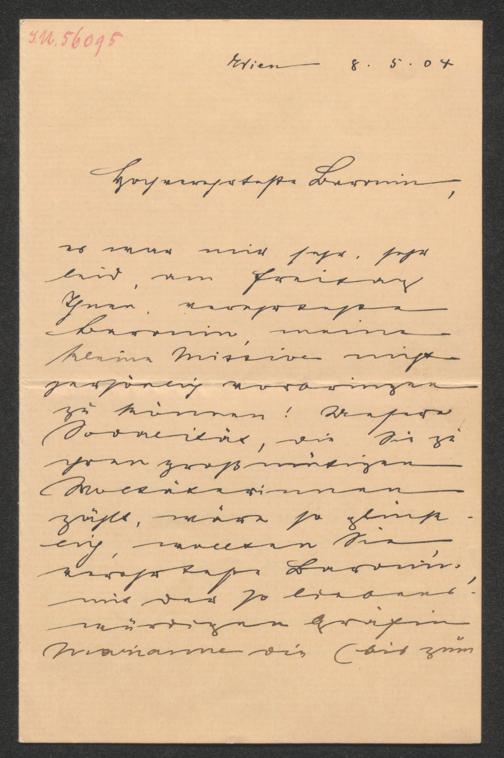 I.N. 56095
Wien 8. 5. 04
Hochverehrteste Baronin,
es war mir sehr, sehr
leid, am Freitag
Ihnen, verehrteste
Baronin, meine
kleine Missive nicht
persönlich vorbringen
zu können! Unsere
Sodalität, die Sie zu
ihren großmütigen
Wohltäterinnen
zählt, wäre so glück-
lich, wollten Sie
verehrteste Baronin,
mit der so liebens-
würdigen Gräfin
Marianne die (bis zum